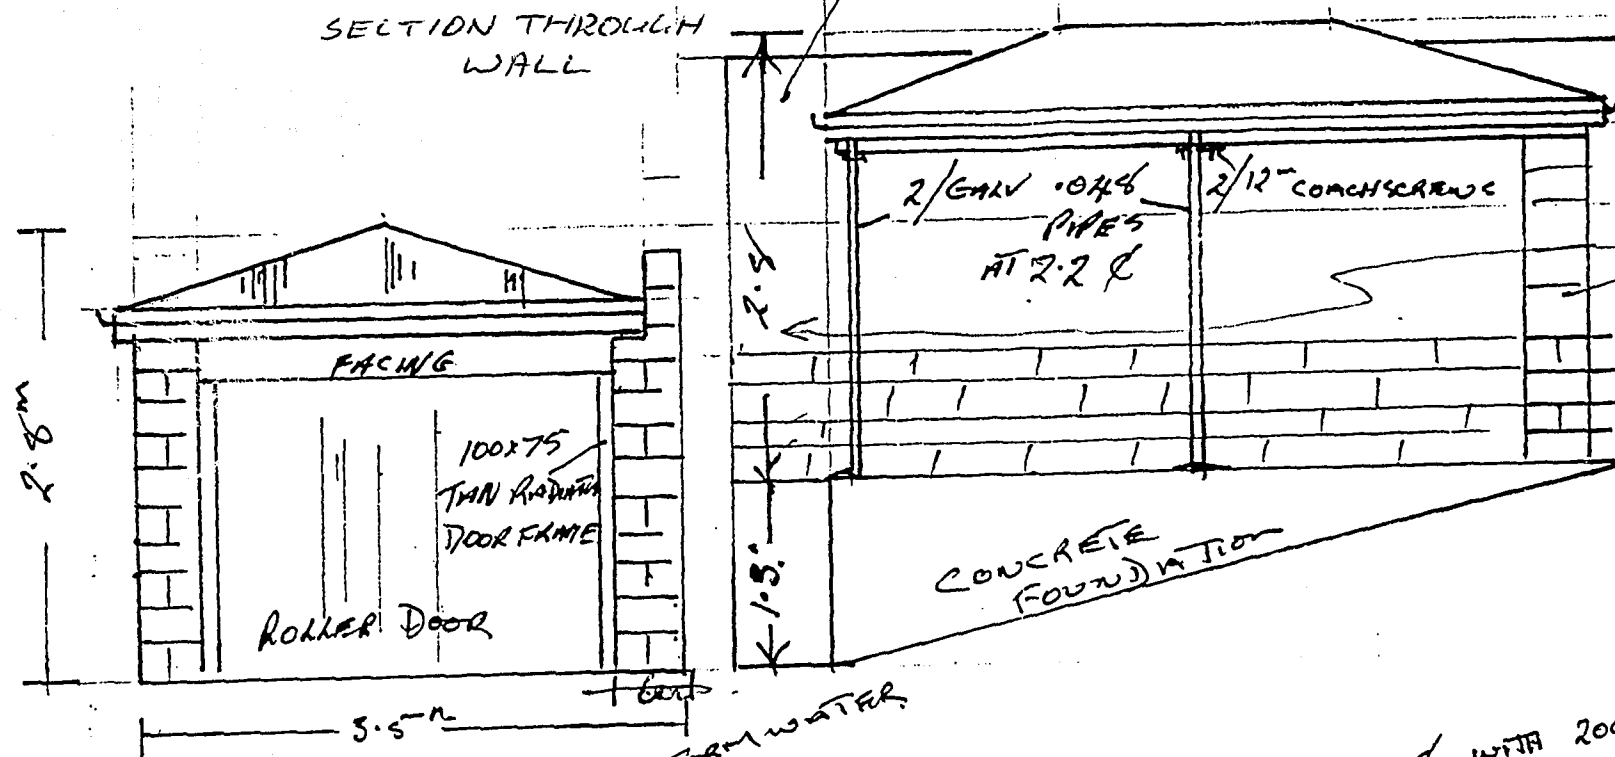 SECTION THROUGH
WALL
2/GALV .048
PIPES
AT 2.2 ₵
2/12m COACHSCREWS
2.8
2.8m
FACING
100x75
TAN RADIATA
DOOR FRAME
ROLLER DOOR
3.5m
1.3
CONCRETE
FOUNDATION
WITH 200